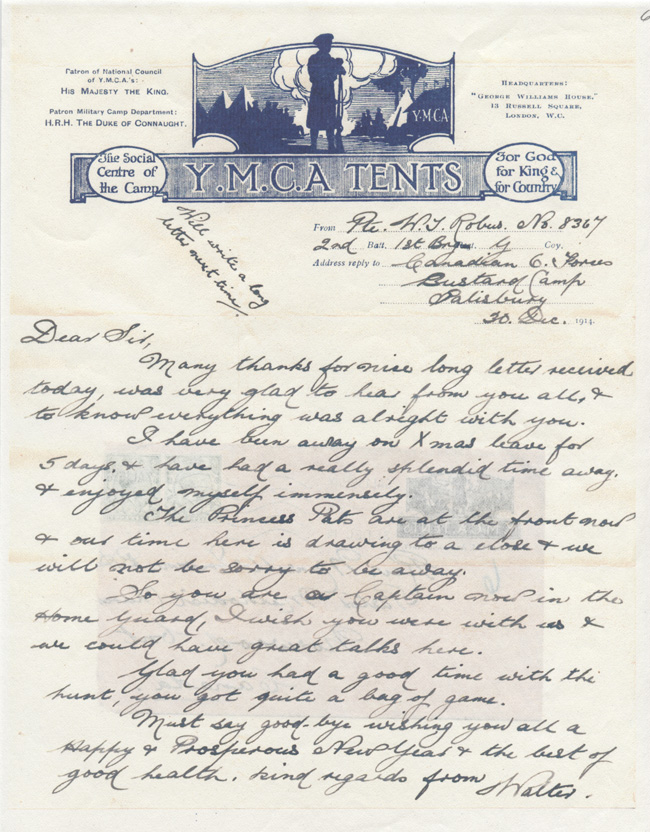 Patron of National Council
of Y.M.C.A.'s:
HIS MAJESTY THE KING.
Patron Military Camp Department:
H.R.H. THE DUKE OF CONNAUGHT.
HEADQUARTERS:
"GEORGE WILLIAMS HOUSE,"
13 RUSSELL SQUARE,
LONDON, W.C.
Y·M·CA
The Social
Centre of
the Camp
Y.M.C.A TENTS
For God
for King &
for Country
Will write a long
letter next time.
From Pte. W. J. Robus. No. 8367
2nd Batt. 1st Brgn G Coy.
Address reply to Canadian E. Forces
Bustard Camp
Salisbury
30. Dec. 1914.
Dear Sir,
Many thanks for nice long letter received
today, was very glad to hear from you all, &
to know everything was alright with you.
I have been away on Xmas leave for
5 days. & have had a really splendid time away.
& enjoyed myself immensely.
The Princess Pats are at the front now
& our time here is drawing to a close & we
will not be sorry to be away.
So you are a Captain now in the
Home Guard, I wish you were with us &
we could have great talks here.
Glad you had a good time with the
hunt, you got quite a bag of game.
Must say good-bye wishing you all a
Happy & Prosperous New Year & the best of
good health. kind regards from
Walter.